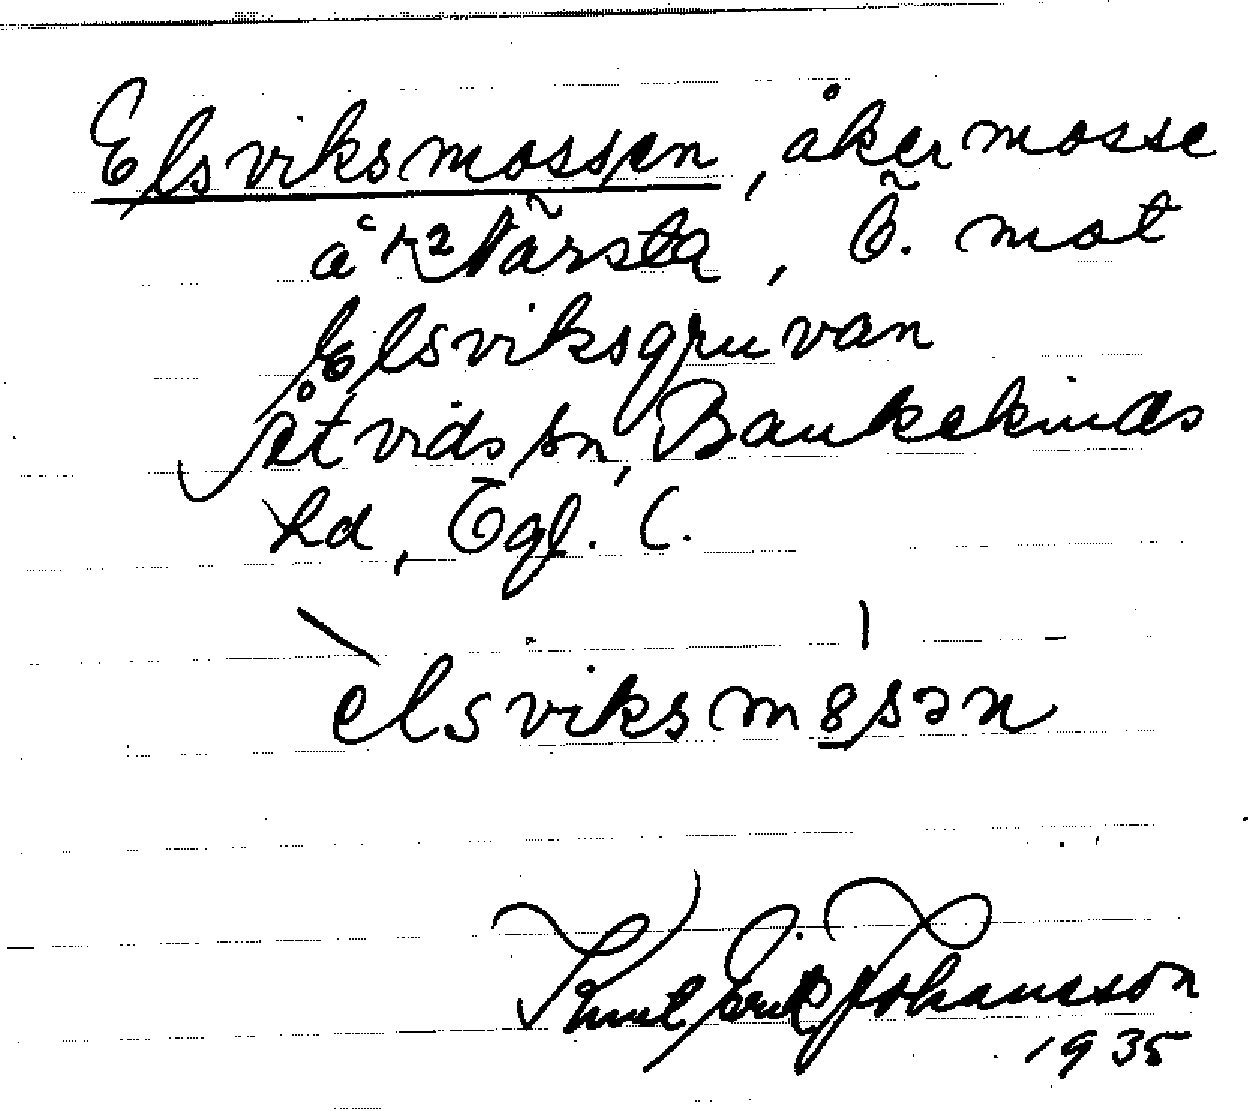 Elsviksmossen, åkermosse
å 1/2 Närsta, Ö. mot
Elsviksgruvan
Åtvids sn, Bankekinds
hd, Ögl. C.
elsviksmosən
Knut Erik Johansson
1935